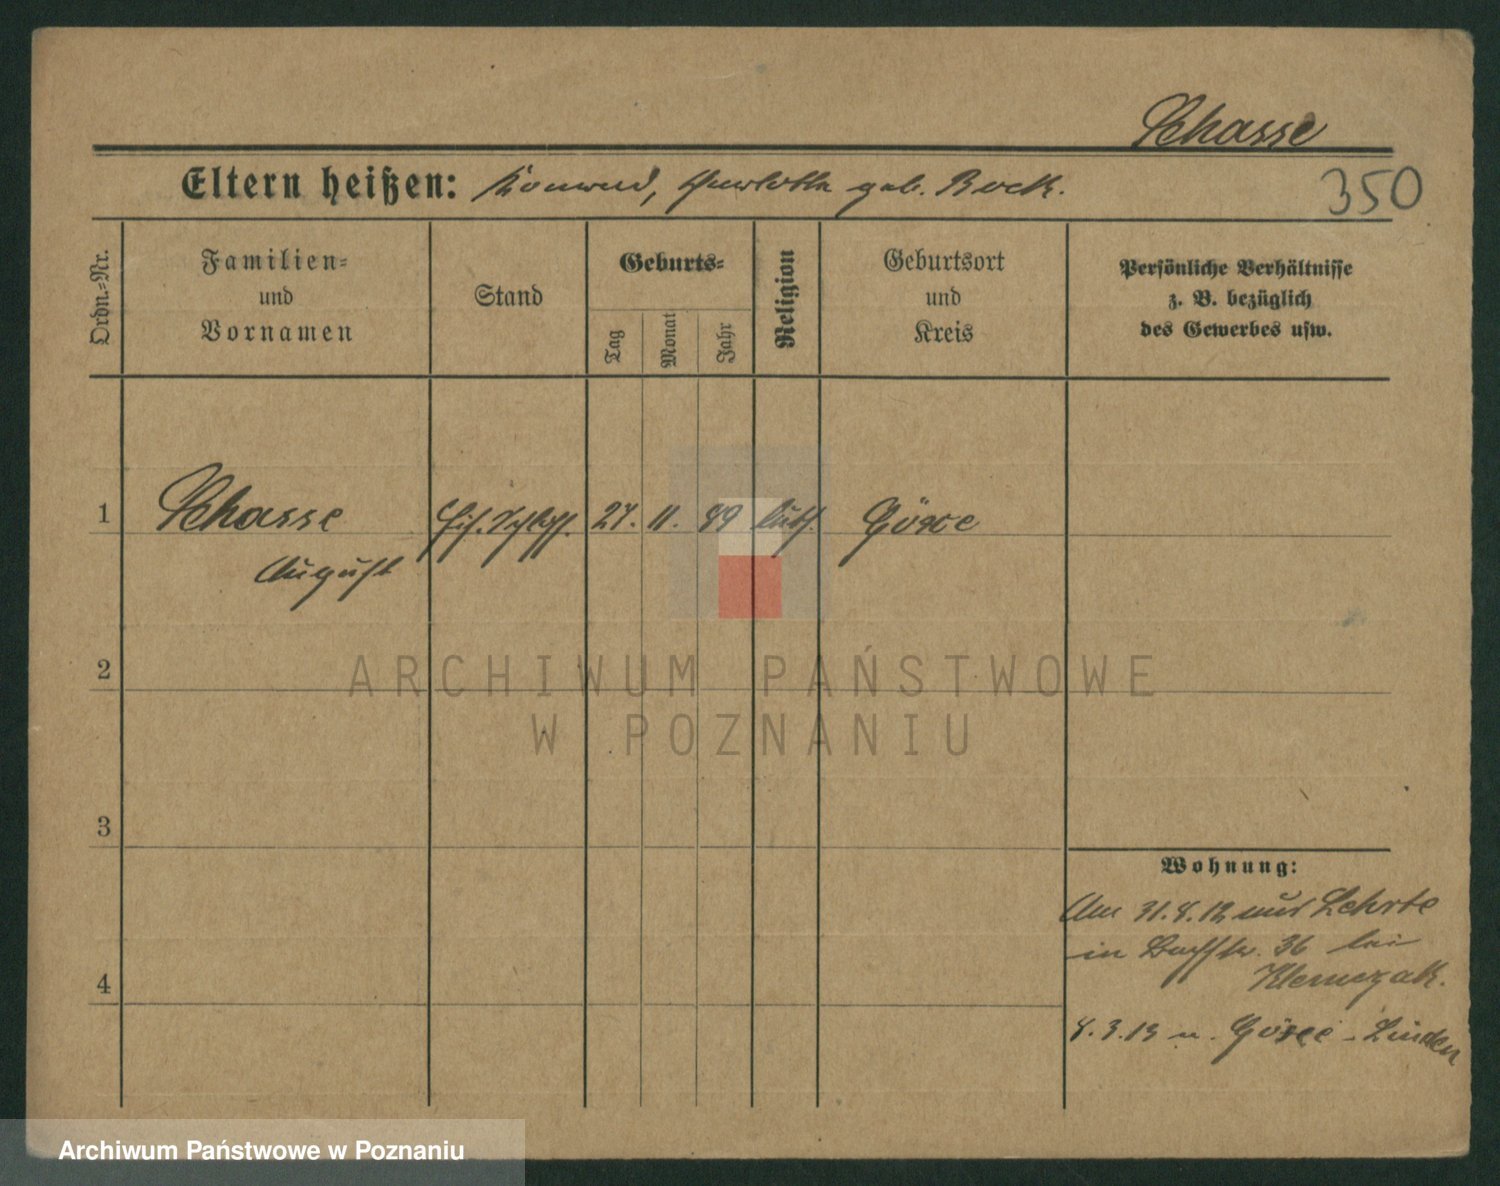 Schasse
Eltern heißen: Konrad, Charlotte geb. Bock.
350
Ordn.-Nr.
Familien-
und
Vornamen
Stand
Geburts-
Tag
Monat
Jahr
Religion
Geburtsort
und
Kreis
Persönliche Verhältnisse
z. B. bezüglich
des Gewerbes usw.
1 Schasse 27. 11. 89 luth.
August
2
3
4
Wohnung:
Am 31.8.12 aus Lehrte
in 36 bei
8.3.13 n. - Linden
ARCHIWUM PAŃSTWOWE
W POZNANIU
Archiwum Państwowe w Poznaniu